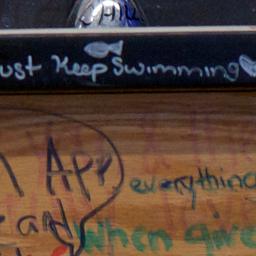 ust Keep Swimming
App
everything
and
When give